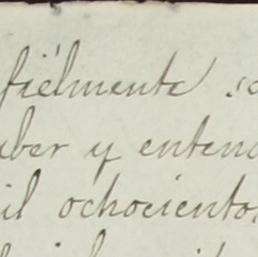 fielmente
aber y entend
il ochociento